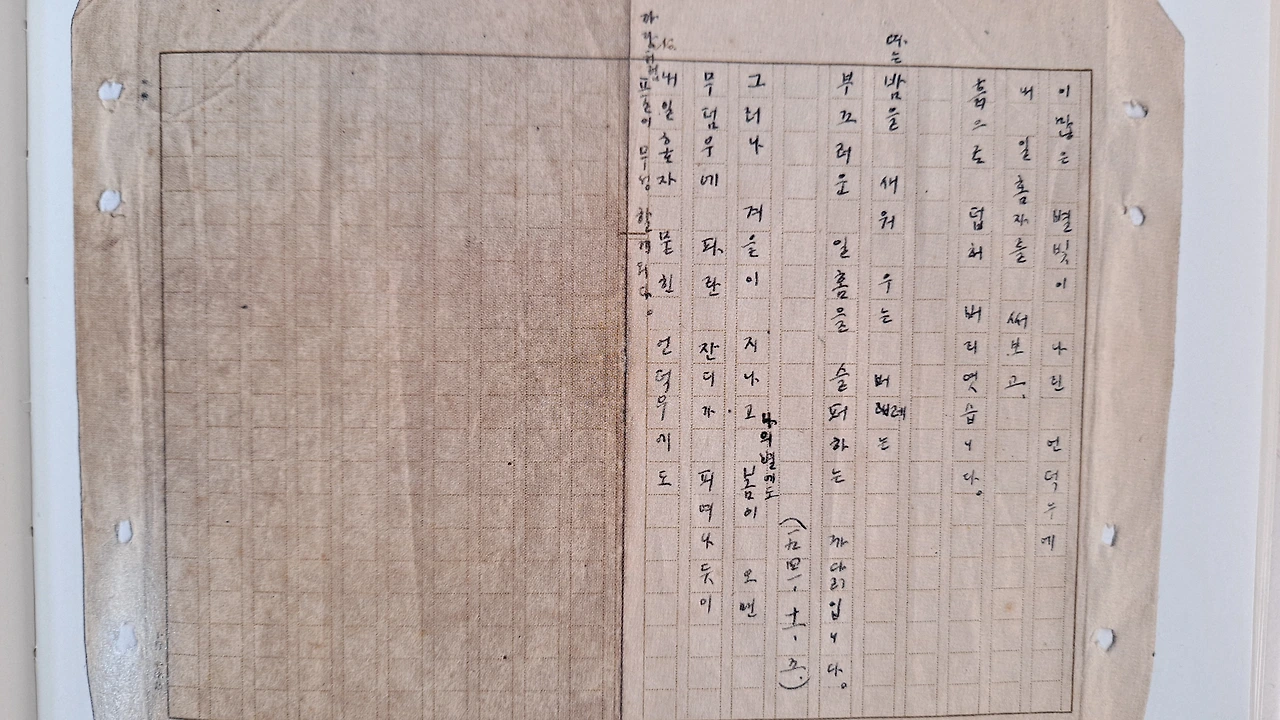 이 많은 별빛이 나린 언덕우에
내 일홈자를 써보고,
흙으로 덥허 버리엿습니다.
따는 밤을 새워 우는 버레는
부끄러운 일홈을 슬퍼하는 까닭입니다.
(一九四一、十一、五.)
그러나 겨을이 지나고 나의 별에도 봄이 오면
무덤우에 파란 잔디가 피여나듯이
내일홈자 묻힌 언덕우에도
자랑처럼 풀이 무성 할게외다。